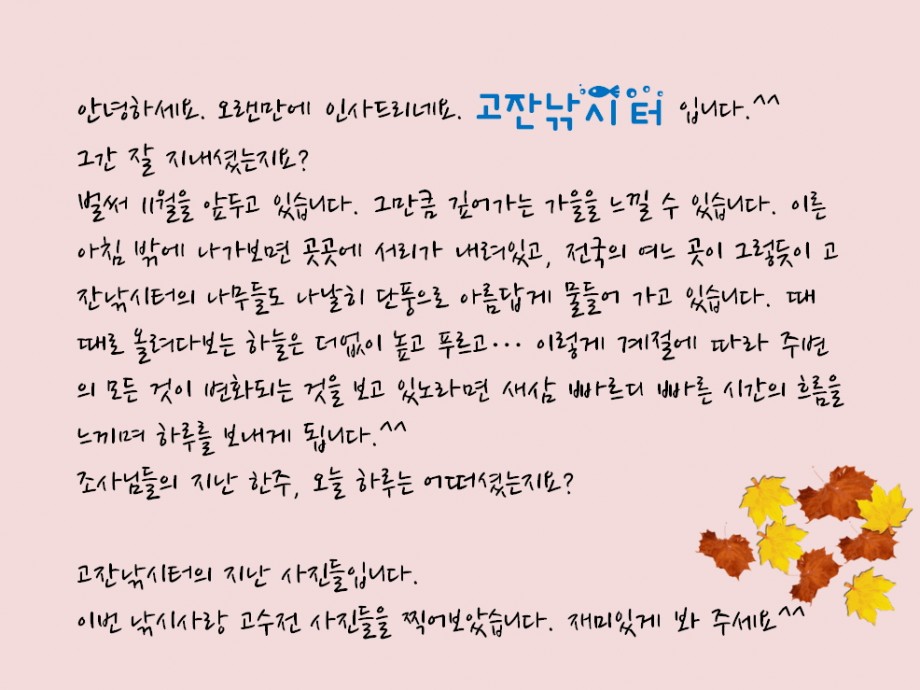 안녕하세요. 오랜만에 인사드리네요. 고잔낚시터 입니다.^^
그간 잘 지내셨는지요?
벌써 11월을 앞두고 있습니다. 그만큼 깊어가는 가을을 느낄 수 있습니다. 이른
아침 밖에 나가보면 곳곳에 서리가 내려있고, 전국의 여느 곳이 그렇듯이 고
잔낚시터의 나무들도 나날히 단풍으로 아름답게 물들어 가고 있습니다. 때
때로 올려다보는 하늘은 더없이 높고 푸르고... 이렇게 계절에 따라 주변
의 모든 것이 변화되는 것을 보고 있노라면 새삼 빠르디 빠른 시간의 흐름을
느끼며 하루를 보내게 됩니다.^^
조사님들의 지난 한주, 오늘 하루는 어떠셨는지요?
고잔낚시터의 지난 사진들입니다.
이번 낚시사랑 고수전 사진들을 찍어보았습니다. 재미있게 봐 주세요^^